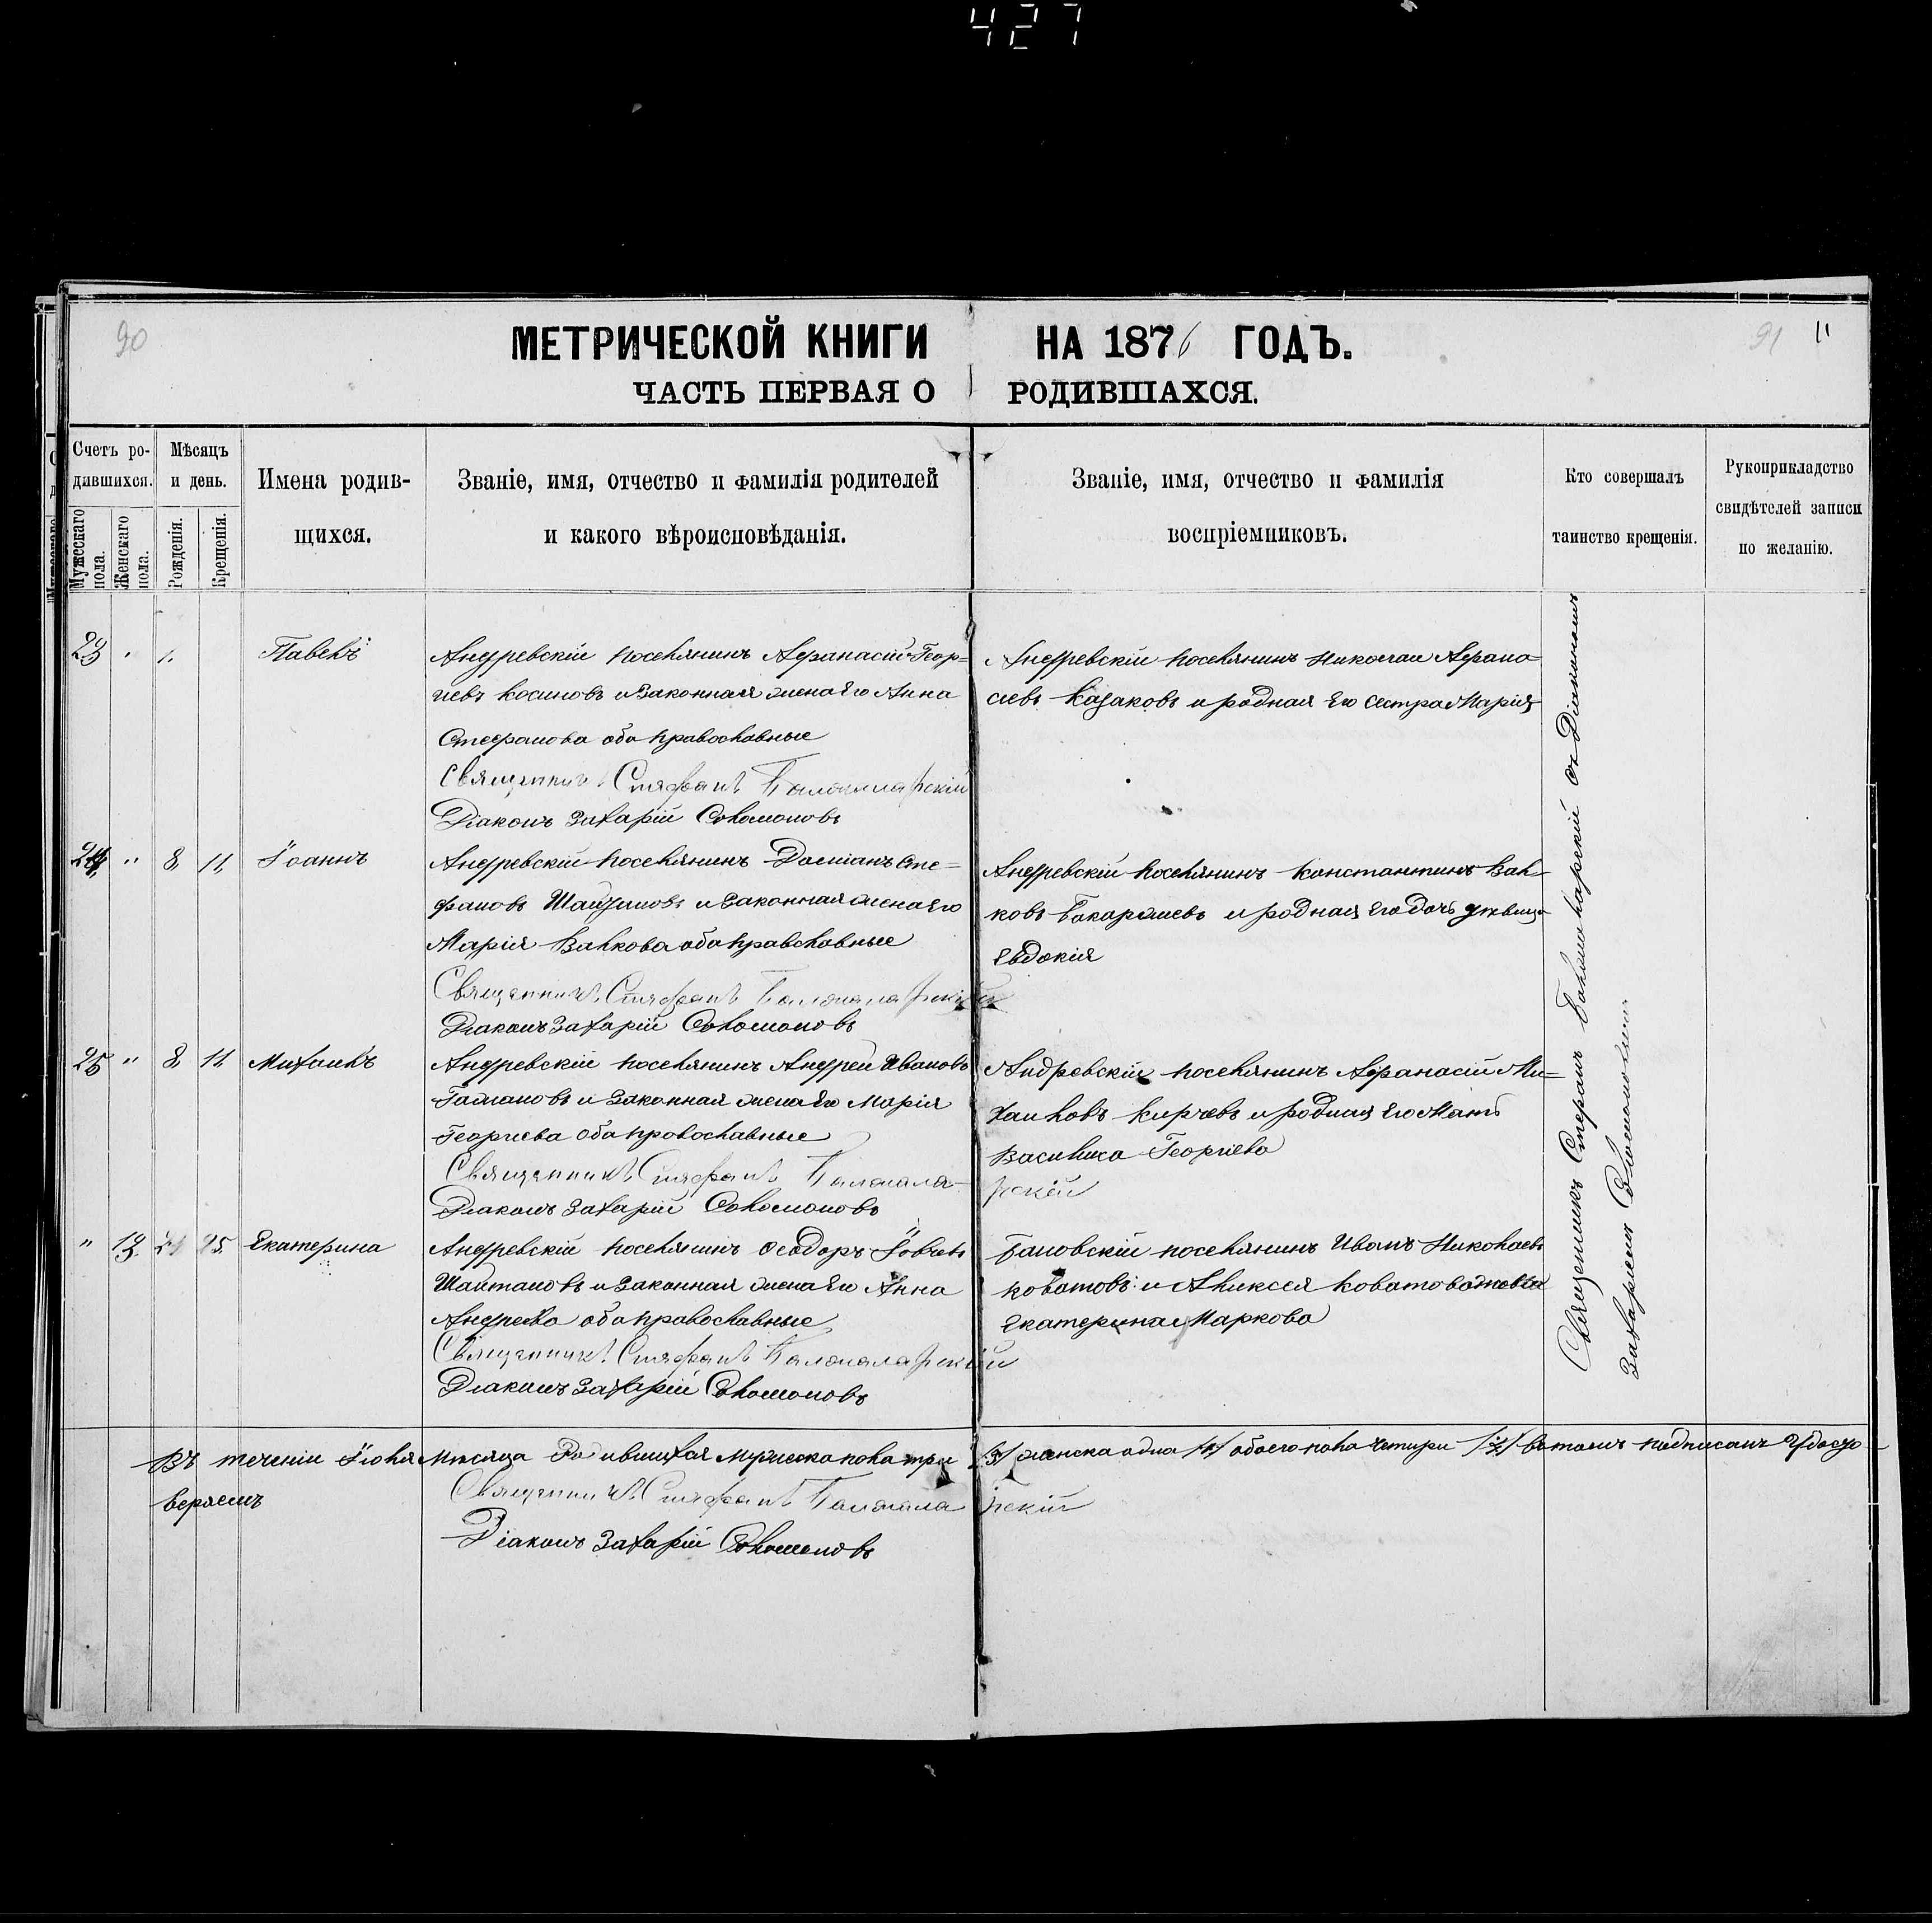 427
90
МЕТРИЧЕСКОЙ КНИГИ НА 1876 ГОДЪ.
91 11
ЧАСТЬ ПЕРВАЯ О РОДИВШАХСЯ.
Счетъ ро-
дившихся.
Мужескаго
пола.
Женскаго
пола.
Мѣсяцъ
и день.
Рожденія.
Крещенія.
Имена родив-
щихся.
Званіе, имя, отчество и фамилія родителей
и какого вѣроисповѣданія.
Званіе, имя, отчество и фамилія
воспріемниковъ.
Кто совершалъ
таинство крещенія.
Рукоприкладство
свидѣтелей записи
по желанію.
23 " 1. Павелъ
Андревскій поселянинъ Афанасій Геор=
гіевъ Косиновъ и Законная жена Его Анна
Стефанова оба православные
Священникъ Стефанъ
Діаконъ Захарій Соломоновъ
Андревскій поселянинъ Николаи Афана=
сіевъ Казаковъ и родная Его Сестра Марія
24 " 8 11 Іоаннъ
Андревскій поселянинъ Даміанъ Сте=
фановъ и Законная жена Его
Марія Валкова оба правславные
Священникъ Стефанъ
Діаконъ Захарій Соломоновъ
Андревскій поселянинъ Константинъ Вал-
ковъ и родная Его дочь девица
Евдокія
25 " 8 11 Михаилъ
Андревскіи поселянинъ Андреи Ивановъ
и Законная жена Его Марія
Георгиева оба провославные
Священникъ Стефанъ
Діаконъ Захарій Соломоновъ
Андревскіи поселянинъ Афанасій Ми=
хаиловъ Кирчевъ и родная Его Мать
Василиса Георгіева
" 13 25 Екатерина
Андревскіи поселянинъ Феодоръ
Шайтановъ и Законная жена Его Анна
Андреева оба православные
Священникъ Стефанъ
Діаконъ Захарій Соломоновъ
Бановскіи поселянинъ Иванъ Николаевъ
Коватовъ и
Екатерина Маркова
Священникъ Стефанъ съ Діакономъ
Захаріемъ Соломоновымъ
Въ теченіи Іюля Месяца Родившихся Мужеска пола три /3/ женска одна /1/ обоего пола четири /4/ въ томъ подписомъ Удосто-
веряемъ
Священникъ Стефанъ
Діаконъ Захарій Соломоновъ